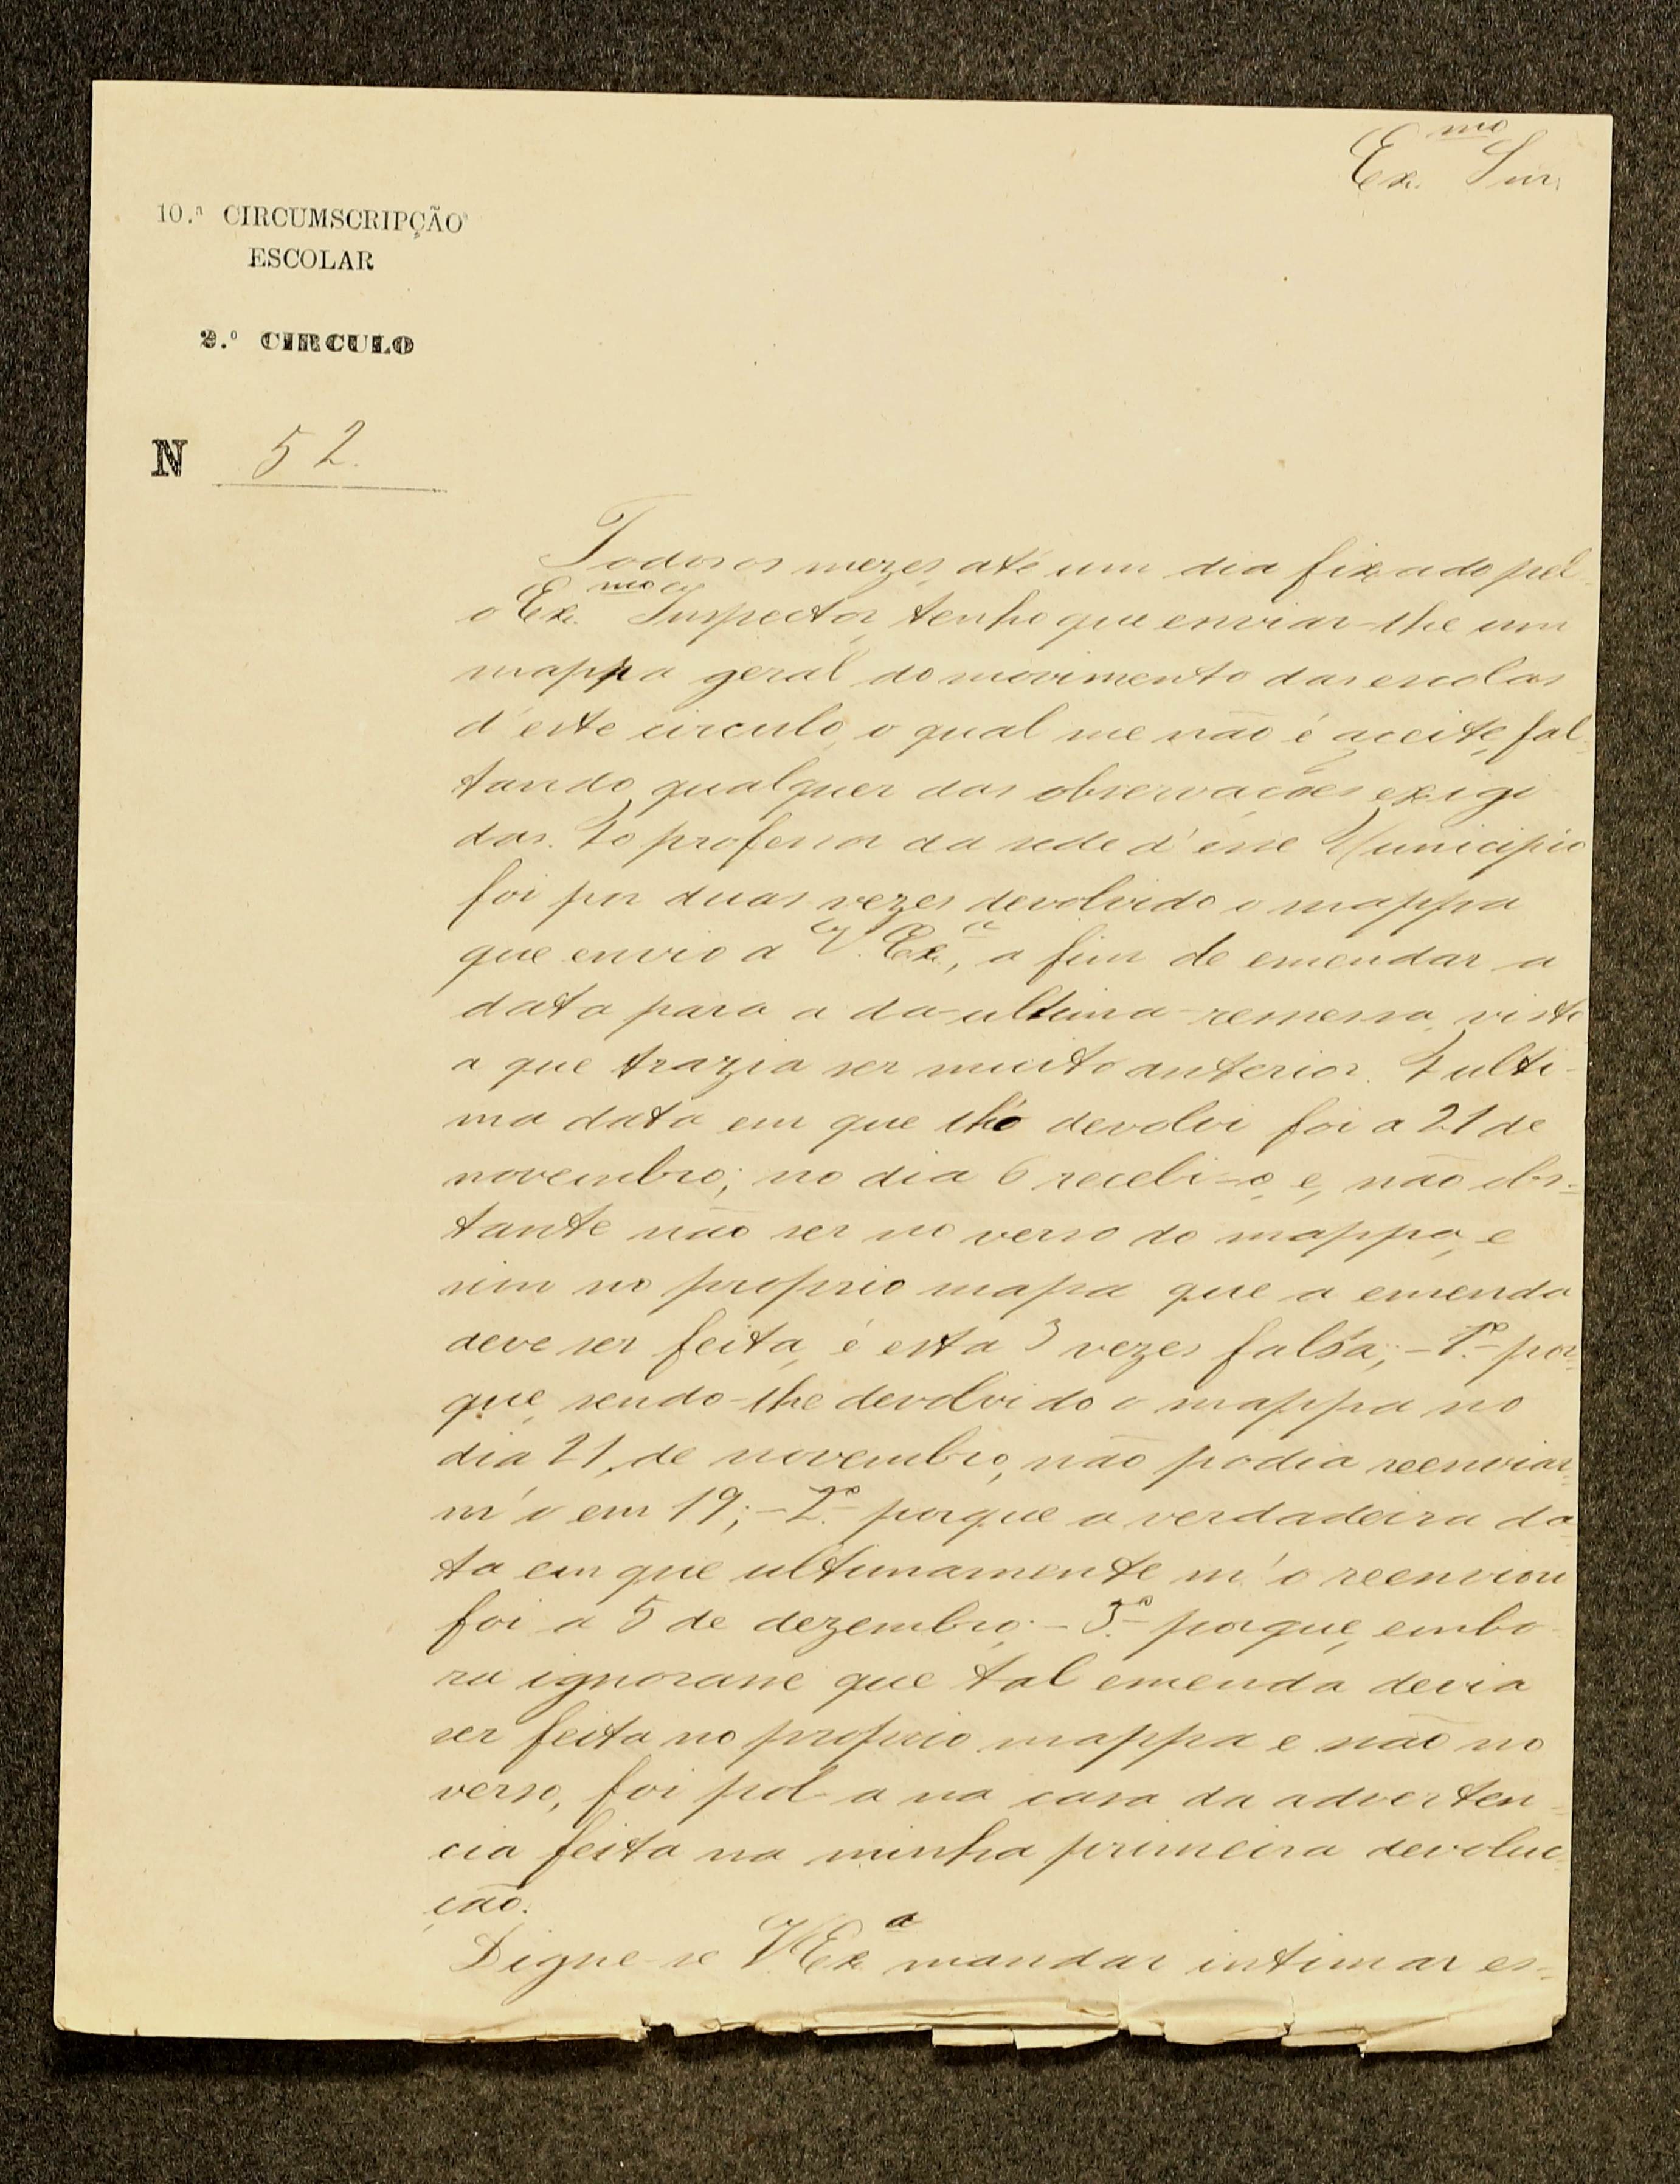 Ex.mo Snr.
10.ª CIRCUMSCRIPÇÃO
ESCOLAR
2.º CIRCULO
N 52.
Todos os mezes, até um dia fixado pel-
o Ex.mo Inspector, tenho que enviar-lhe um
mappa geral do movimento das escolas
d'este circulo, o qual me não é aceite, fal-
tando qualquer das observações exigi-
das. Ao professor da sede d'esse Municipio
foi por duas vezes devolvido o mappa
que envio a V. Ex.ª, a fim de emendar a
data para a da ultima remessa, visto
a que trazia ser muito anterior. A ulti-
ma data em que lh'o devolvi foi a 21 de
novembro; no dia 6 recebi-o, e, não obs-
tante não ser no verso do mappa, e
sim no proprio mapa que a emenda
deve ser feita, é esta 3 vezes falsa; - 1.º - por-
que, sendo-lhe devolvido o mappa no
dia 21, de novembro, não podia reenviar-
m'o em 19; - 2.º porque a verdadeira da-
ta em que ultimamente m'o reenviou
foi a 5 de dezembro; - 3.º - porque, embo-
ra ignorasse que tal emenda devia
ser feita no proprio mappa e não no
verso, foi pol-a na casa da adverten-
cia feita na minha primeira devolu-
ção.
Digne-se V. Ex.ª mandar intimar es-